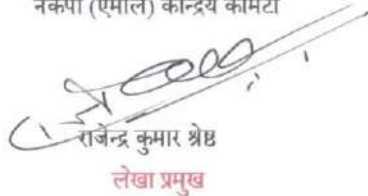 नेकपा (एमाले) केन्द्रिय कमिटी
राजेन्द्र कुमार श्रेष्ठ
लेखा प्रमुख